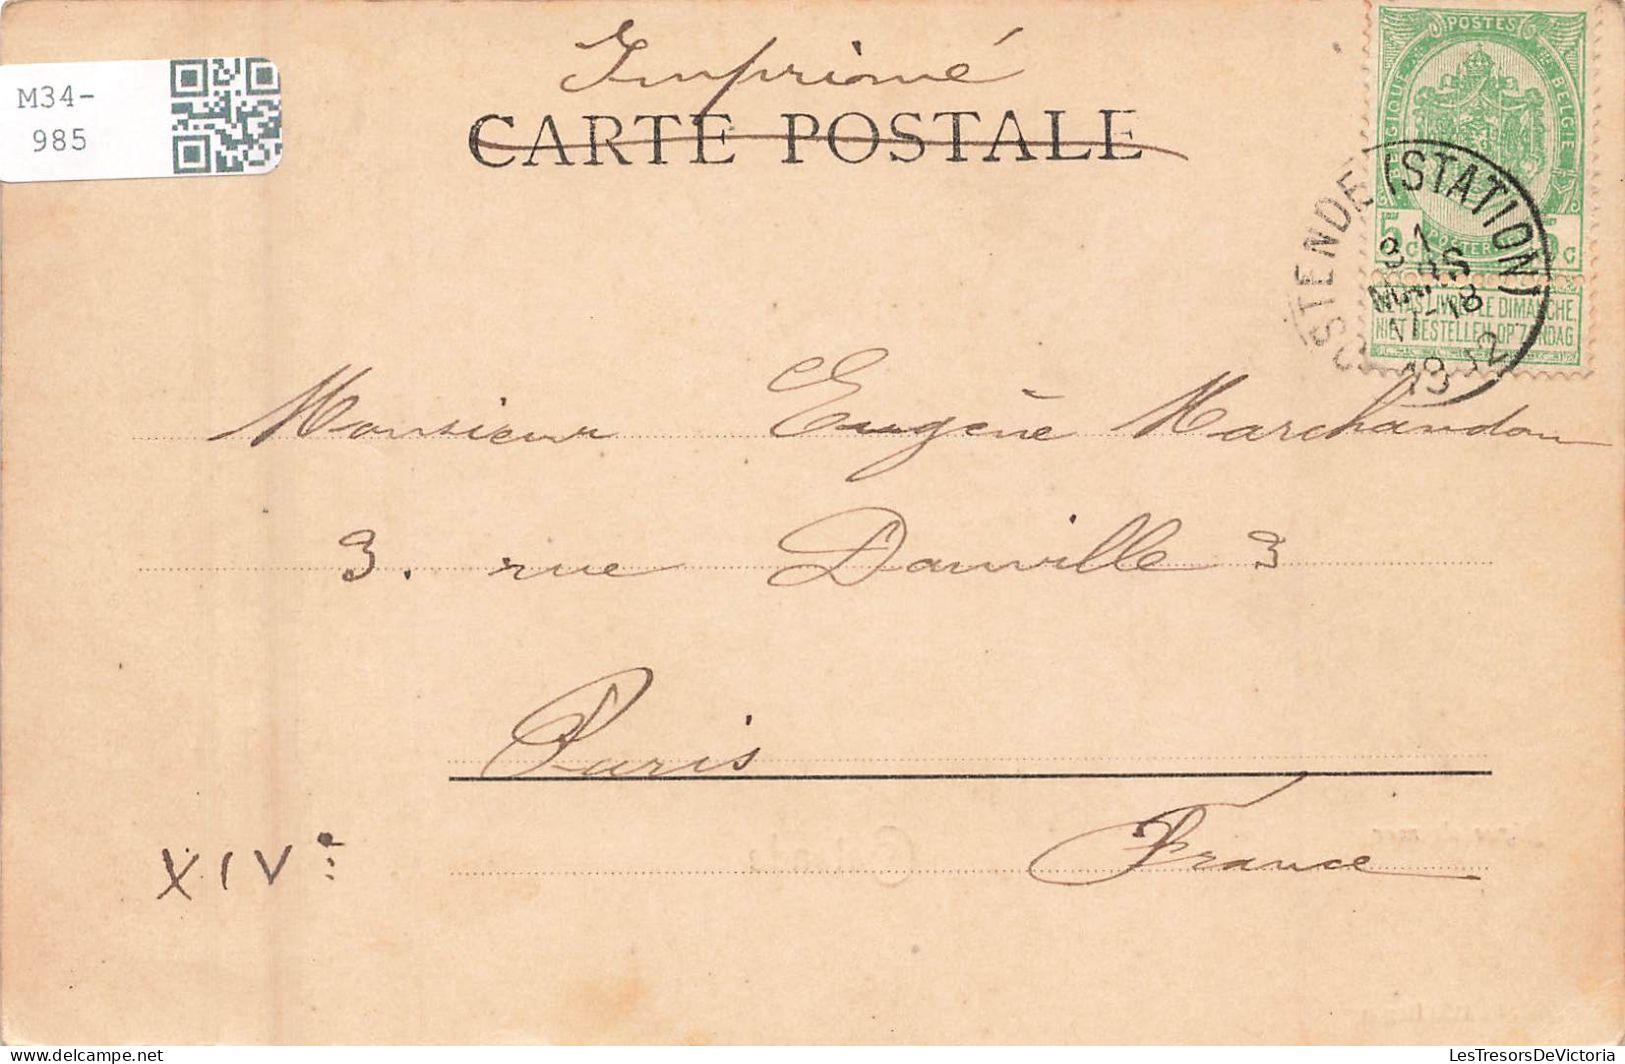 M34-
985
Imprimé
CARTE POSTALE
POSTES
BELGIË
5 c
NE PAS LIVRER LE DIMANCHE
NIET BESTELLEN OP ZONDAG
OSTENDE (STATION)
31
MARS
17-18
Monsieur Eugène Marchandon
3. rue Danville 3
Paris
France
XIVe
LesTresorsDeVictoria